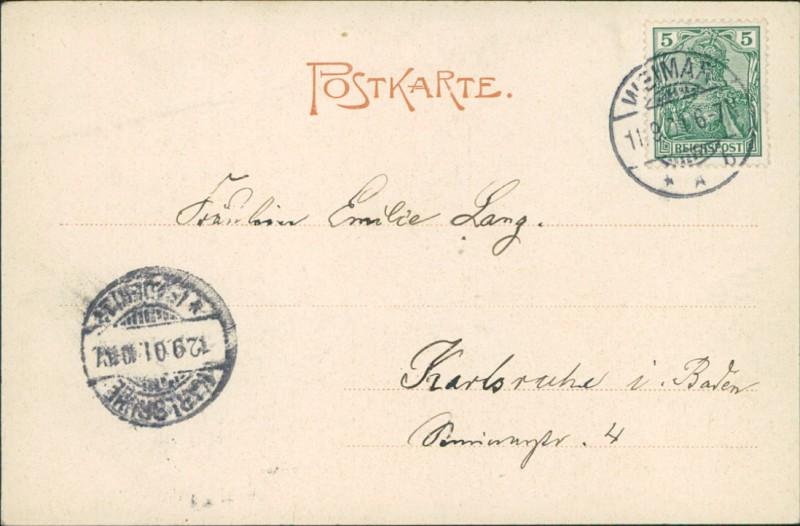 POSTKARTE.
5 5
REICHSPOST
WEIMAR
11.9.01.6-7
* A
Fräulein Emilie Lang.
KARLSRUHE
12.9.01.
Karlsruhe i. Baden
Seminarstr. 4